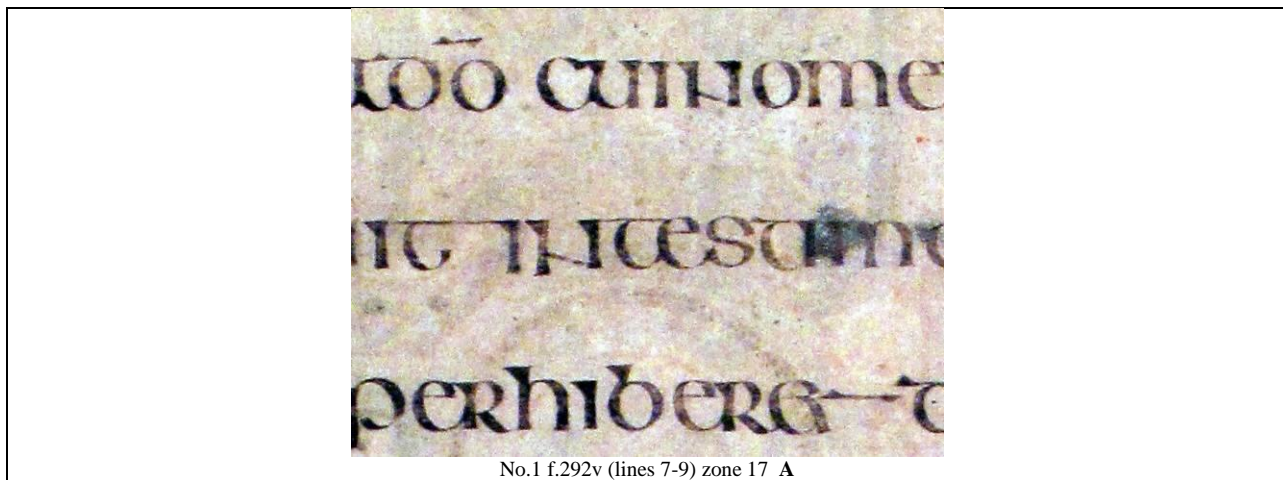 adō cuinome
nit intestimo
perhiberet
No.1 f.292v (lines 7-9) zone 17 A